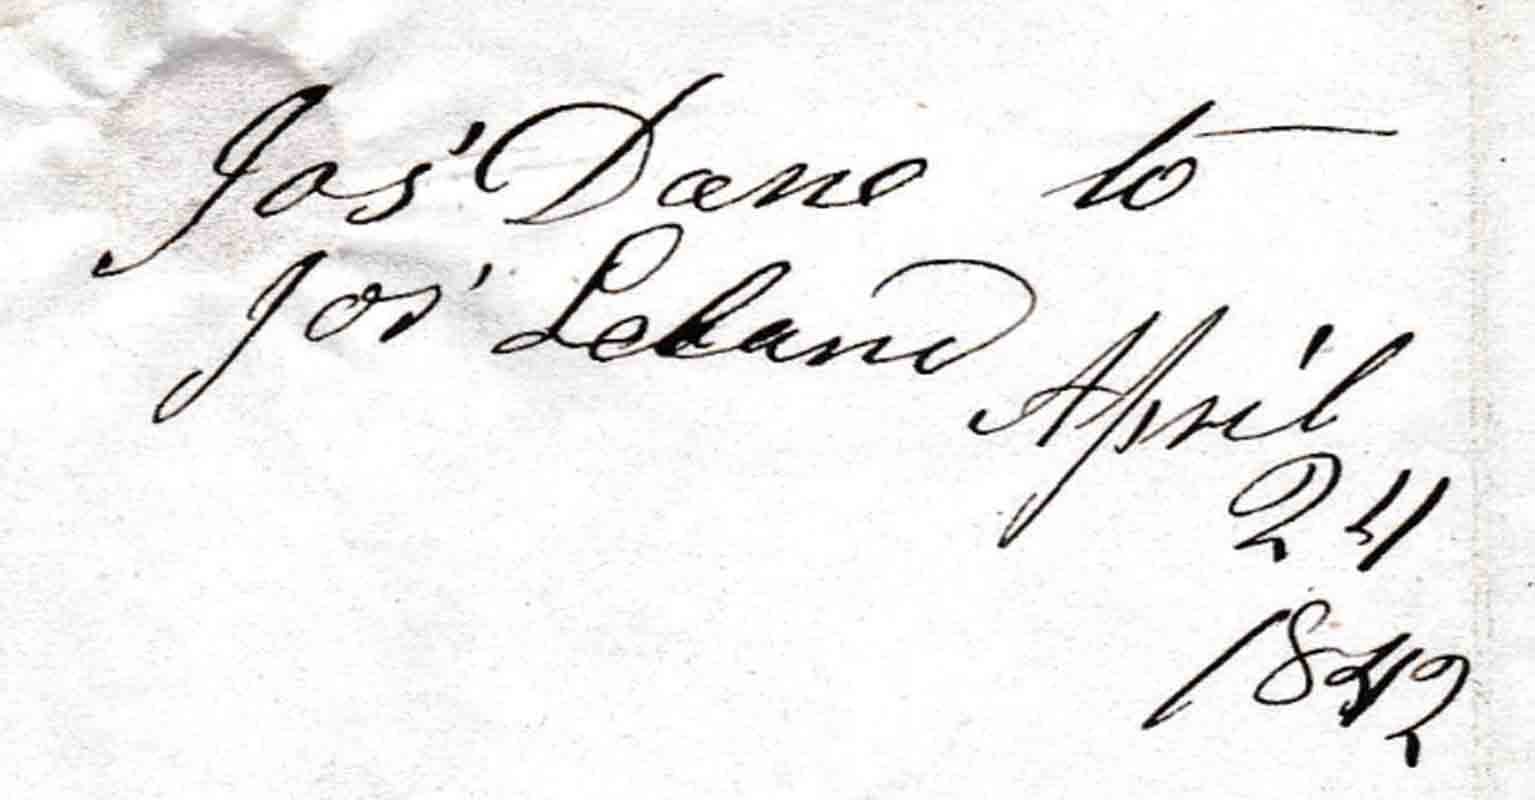 Jos' Dane to
Jos' Leland
April
24
1842